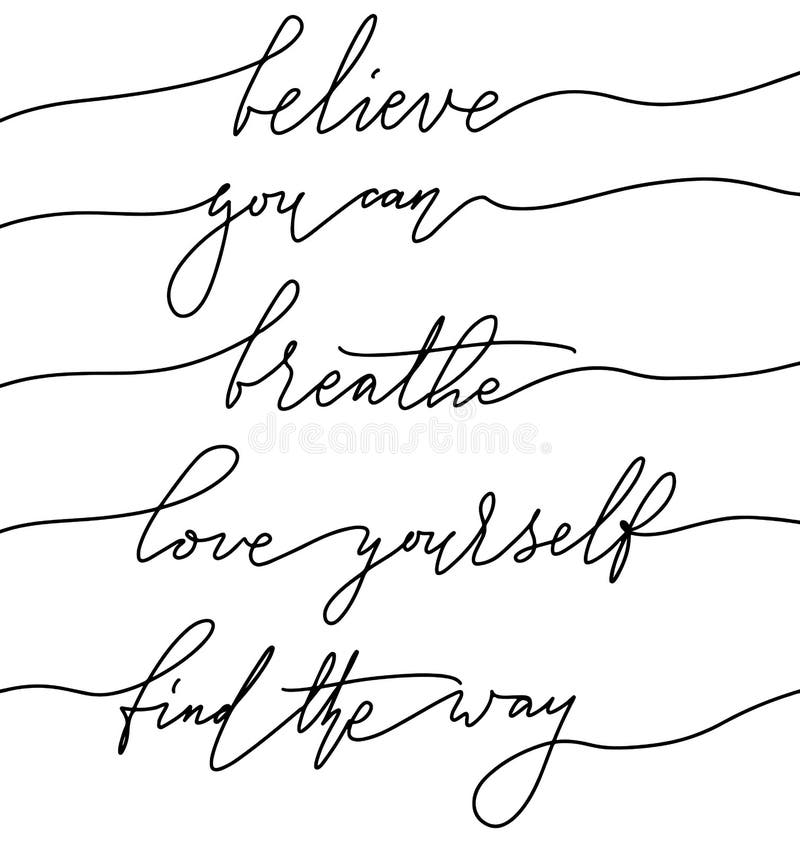 believe
you can
breathe
dreamstime.com
love yourself
find the way